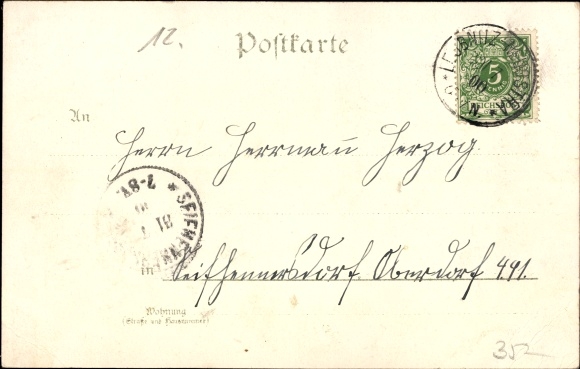 12.
Postkarte
5
PFENNIG
REICHSPOST
An
Herrn Herrmann Herzog
7-8V.
in Seifhennersdorf. Oberdorf 491.
Wohnung
(Straße und Hausnummer)
352